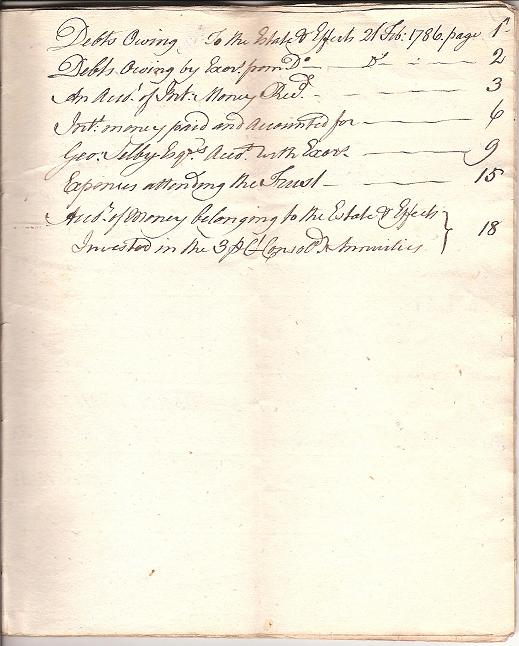 Debts Owing To the Estate & Effects 21 Feb: 1786. page 1
Debts Owing by Exors. from Do. — Do. — 2
An Acco.t of Int: Money Recd. — 3
Int.t money paid and accounted for — 6
Geo: Selby Esqr.s Acco.t with Exors. — 9
Expences attending the Trust — 15
Acco.t of Money belonging to the Estate & Effects
Invested in the 3 P Ct Consold. Annuities } 18